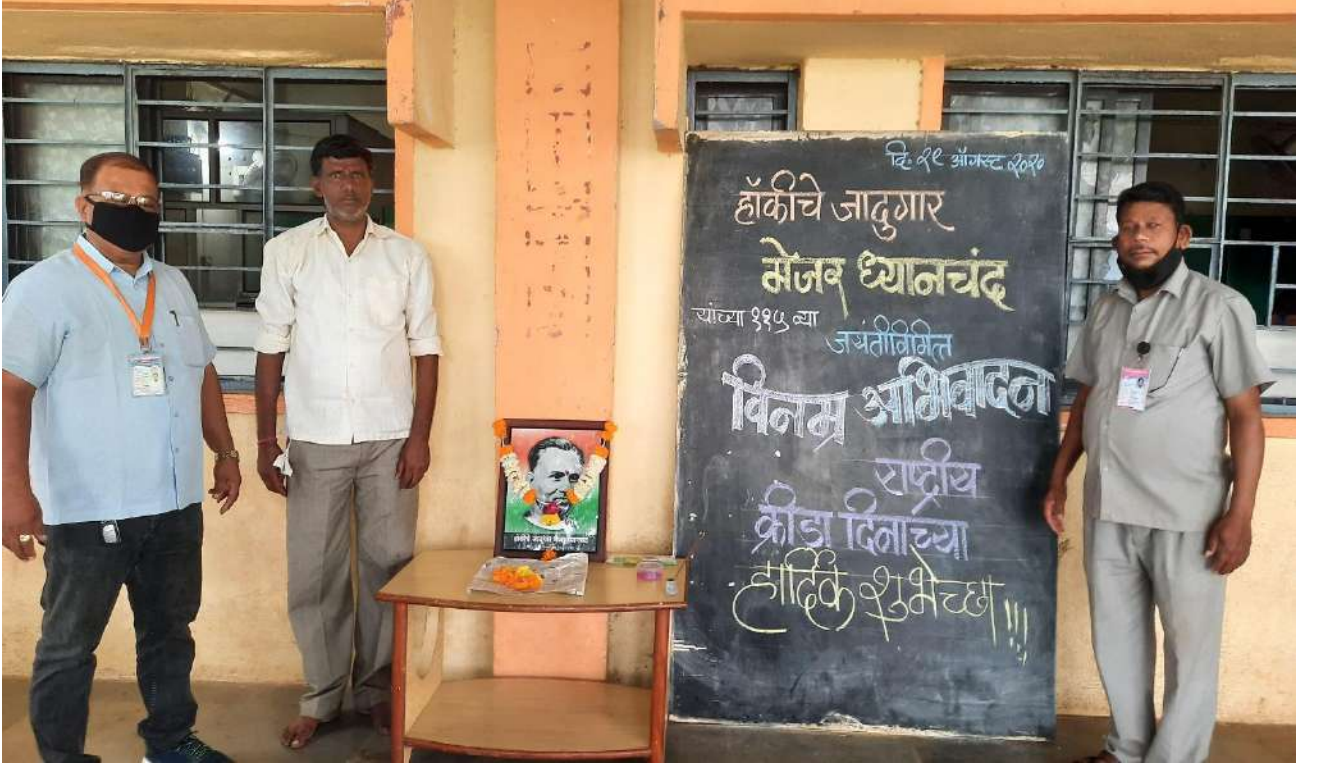 दि. २९ ऑगस्ट २०२०
हॉकीचे जादुगार
मेजर ध्यानचंद
यांच्या ११५ व्या
जयंतीनिमित्त
विनम्र अभिवादन
राष्ट्रीय
क्रीडा दिनाच्या
हार्दिक शुभेच्छा !!!
हॉकीचे जादुगार